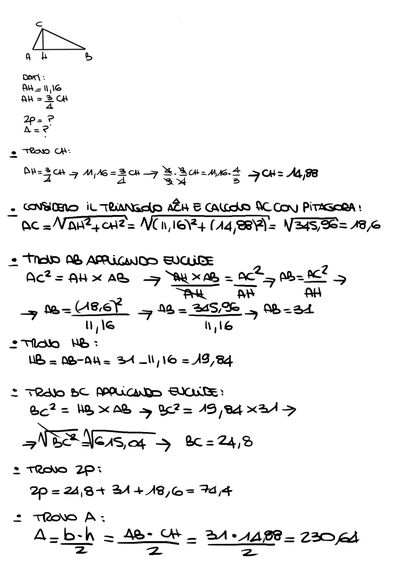 C
A H B
DATI:
AH = 11,16
AH = 3/4 CH
2p = ?
A = ?
- TROVO CH:
AH = 3/4 CH → 11,16 = 3/4 CH → 4/3 · 3/4 CH = 11,16 · 4/3 → CH = 14,88
- CONSIDERO IL TRIANGOLO AĈH E CALCOLO AC CON PITAGORA:
AC = √AH² + CH² = √(11,16)² + (14,88)² = √345,96 = 18,6
- TROVO AB APPLICANDO EUCLIDE
AC² = AH × AB → AH × AB / AH = AC² / AH → AB = AC² / AH →
→ AB = (18,6)² / 11,16 → AB = 345,96 / 11,16 → AB = 31
- TROVO HB:
HB = AB - AH = 31 - 11,16 = 19,84
- TROVO BC APPLICANDO EUCLIDE:
BC² = HB × AB → BC² = 19,84 × 31 →
→ √BC² = √615,04 → BC = 24,8
- TROVO 2p:
2p = 24,8 + 31 + 18,6 = 74,4
- TROVO A:
A = b·h / 2 = AB · CH / 2 = 31 · 14,88 / 2 = 230,64